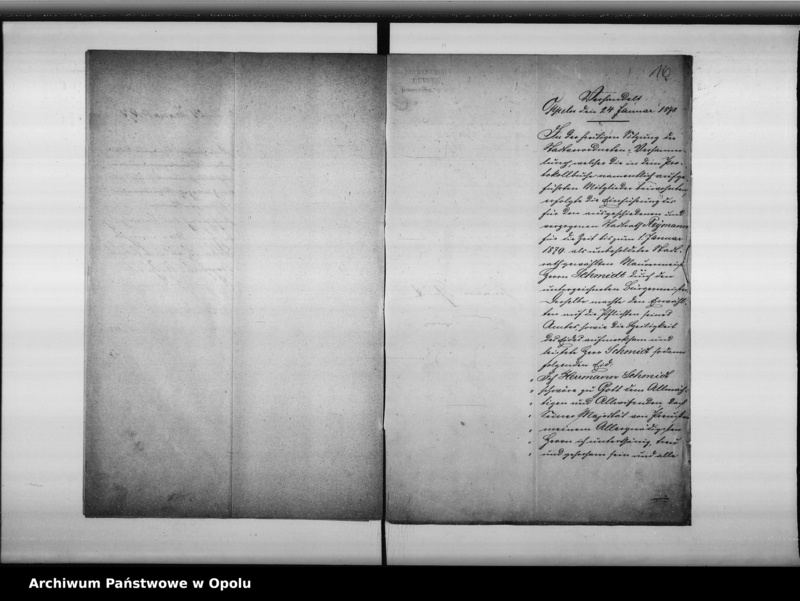 16
Verhandelt
den 24 Januar 1870
In der heutigen Sitzung der
Stadtverordneten-Versamm-
lung, welcher die in dem Pro-
tokollbuche namentlich aufge-
führten Mitglieder beiwohnten
erfolgte die Einführung des
für den ausgeschiedenen und
verzogenen Stadtrath Reymann
für die Zeit bis zum 1. Januar
als unbesoldeter Stadt-
rath gewählten Maurermeister
Herrn Schmidt durch den
unterzeichneten Bürgermeister
Derselbe machte den Erwähl-
ten auf die Pflichten seines
Amtes, sowie die Heiligkeit
des Eides aufmerksam und
leistete Herr Schmidt sodann
folgenden Eid
Ich Hermann Schmidt
schwöre zu Gott dem Allmäch-
tigen und Allwissenden, daß
Seiner Majestät von Preußen
meinem Allergnädigsten
Herrn ich unterthänig, treu
und gehorsam sein und alle
Archiwum Państwowe w Opolu